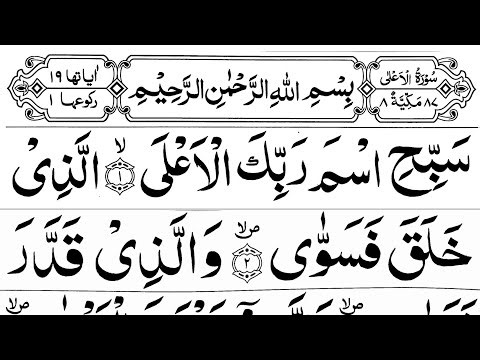 سُوْرَةُ الْاَعْلٰى
٨٧ مَكِّيَّةٌ ٨
بِسْمِ اللهِ الرَّحْمٰنِ الرَّحِيْمِ
اٰيَاتُهَا ١٩
رُكُوْعُهَا ١
سَبِّحِ اسْمَ رَبِّكَ الْاَعْلَى ۙ﴿١﴾ الَّذِىْ
خَلَقَ فَسَوّٰى ۪ۙ﴿٢﴾ وَالَّذِىْ قَدَّرَ